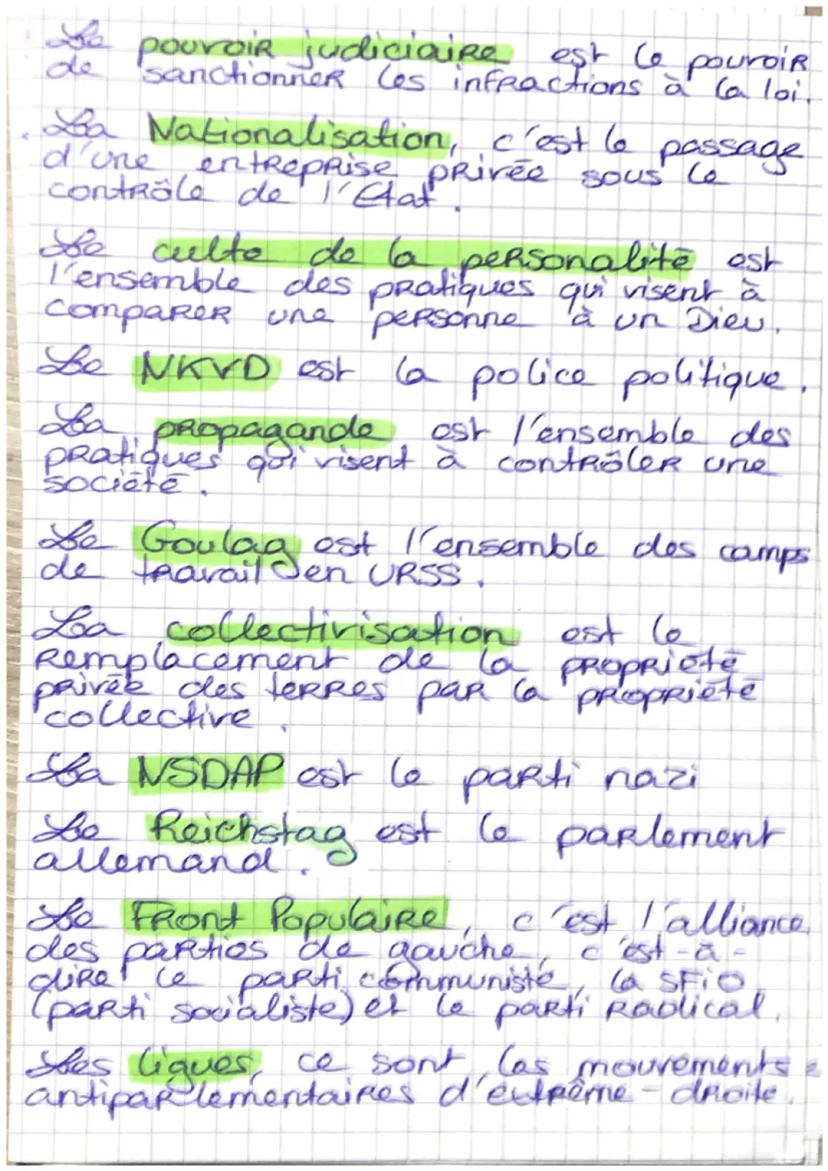 Le pouvoir judiciaire est le pouvoir
de sanctionner les infractions à la loi.
La Nationalisation, c'est le passage
d'une entreprise privée sous le
contrôle de l'Etat.
Le culte de la personalité est
l'ensemble des pratiques qui visent à
comparer une personne à un Dieu.
Le NKVD est la police politique.
La propagande est l'ensemble des
pratiques qui visent à contrôler une
société.
Le Goulag est l'ensemble des camps
de travail en URSS.
La collectivisation est le
remplacement de la propriété
privée des terres par la propriété
collective.
La NSDAP est le parti nazi
Le Reichstag est le parlement
allemand.
Le Front Populaire, c'est l'alliance
des parties de gauche, c'est-à-
dire le parti communiste, la SFiO
(parti socialiste) et le parti Radical.
Les ligues, ce sont les mouvements
antiparlementaires d'extrême-droite.